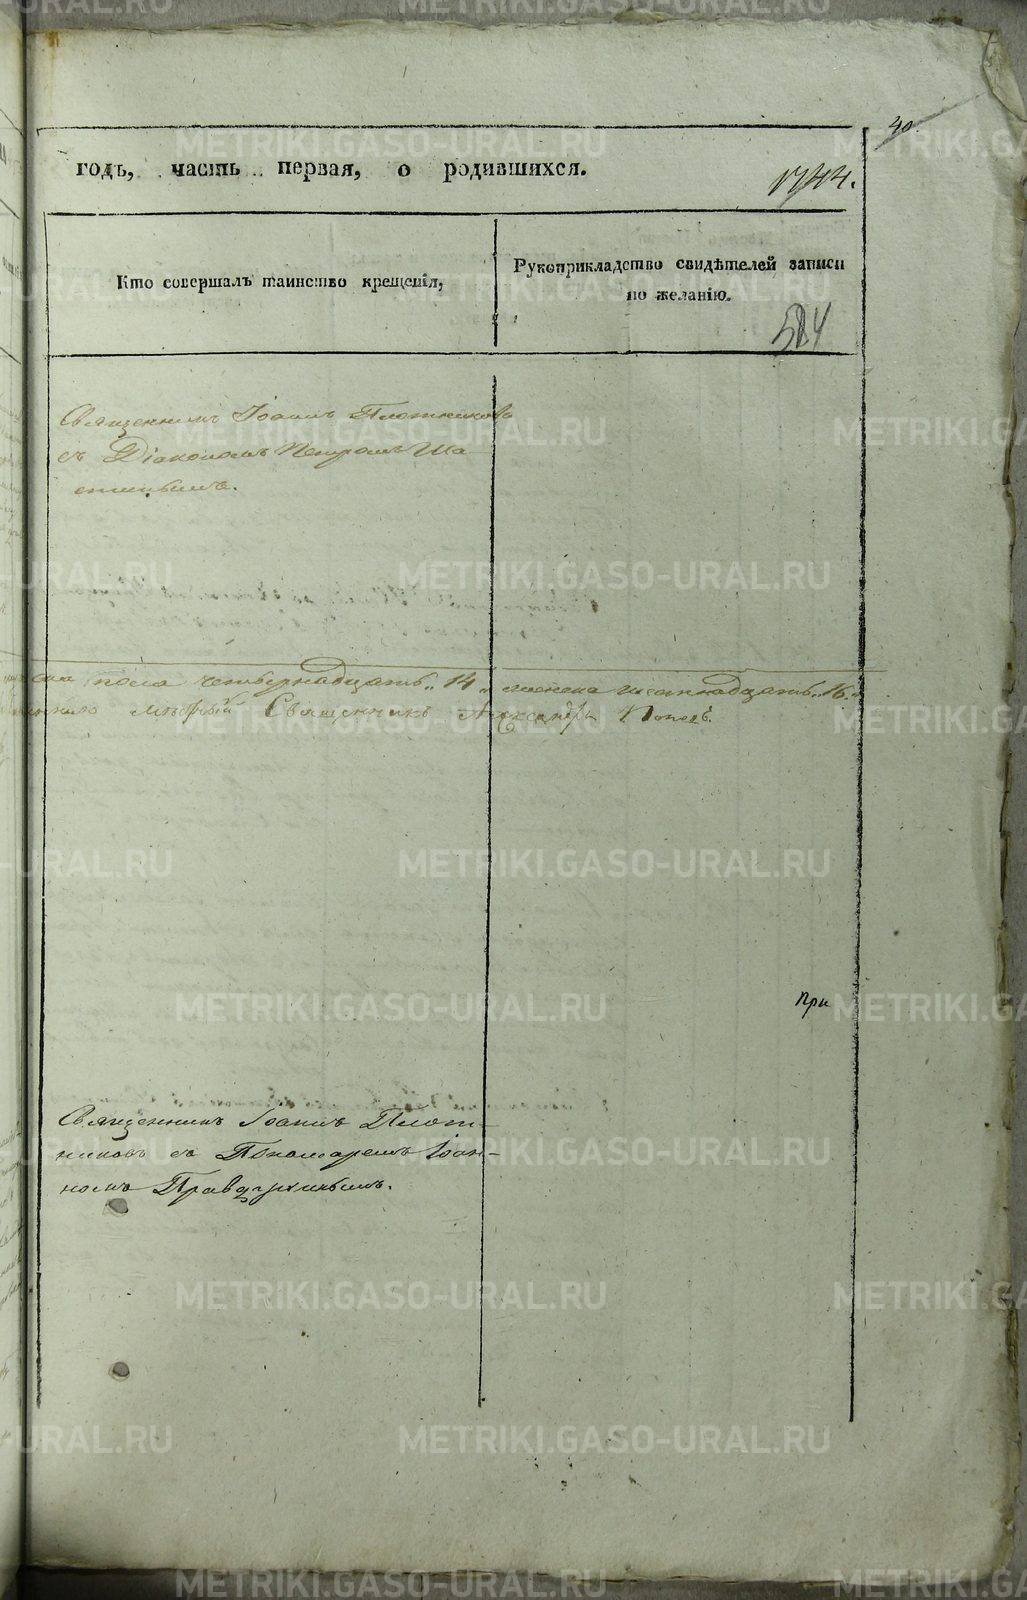 40.
годъ, часть первая, о родившихся.
1744.
Кто совершалъ таинство крещенія,
Рукоприкладство свидѣтелей записи
по желанію.
584
Священникъ Іоаннъ Плотниковъ
съ Діакономъ Петромъ Ша
пола четырнадцать „14„ женска шестнадцать „16„
Священникъ Александръ Поповъ.
При
Священникъ Іоаннъ Плот-
никовъ съ Пономаремъ Іоан-
номъ
METRIKI.GASO-URAL.RU